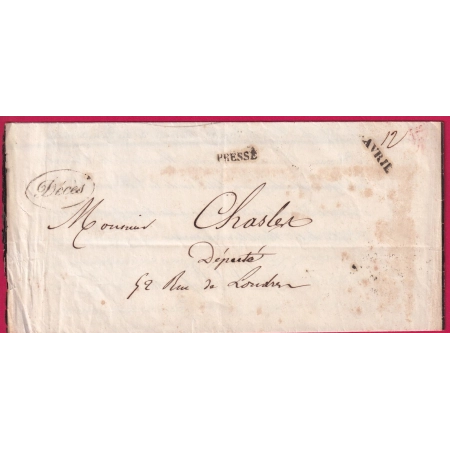 12
PRESSÉ
AVRIL
Décès
Monsieur Chasles
Député
52 Rue de Londres